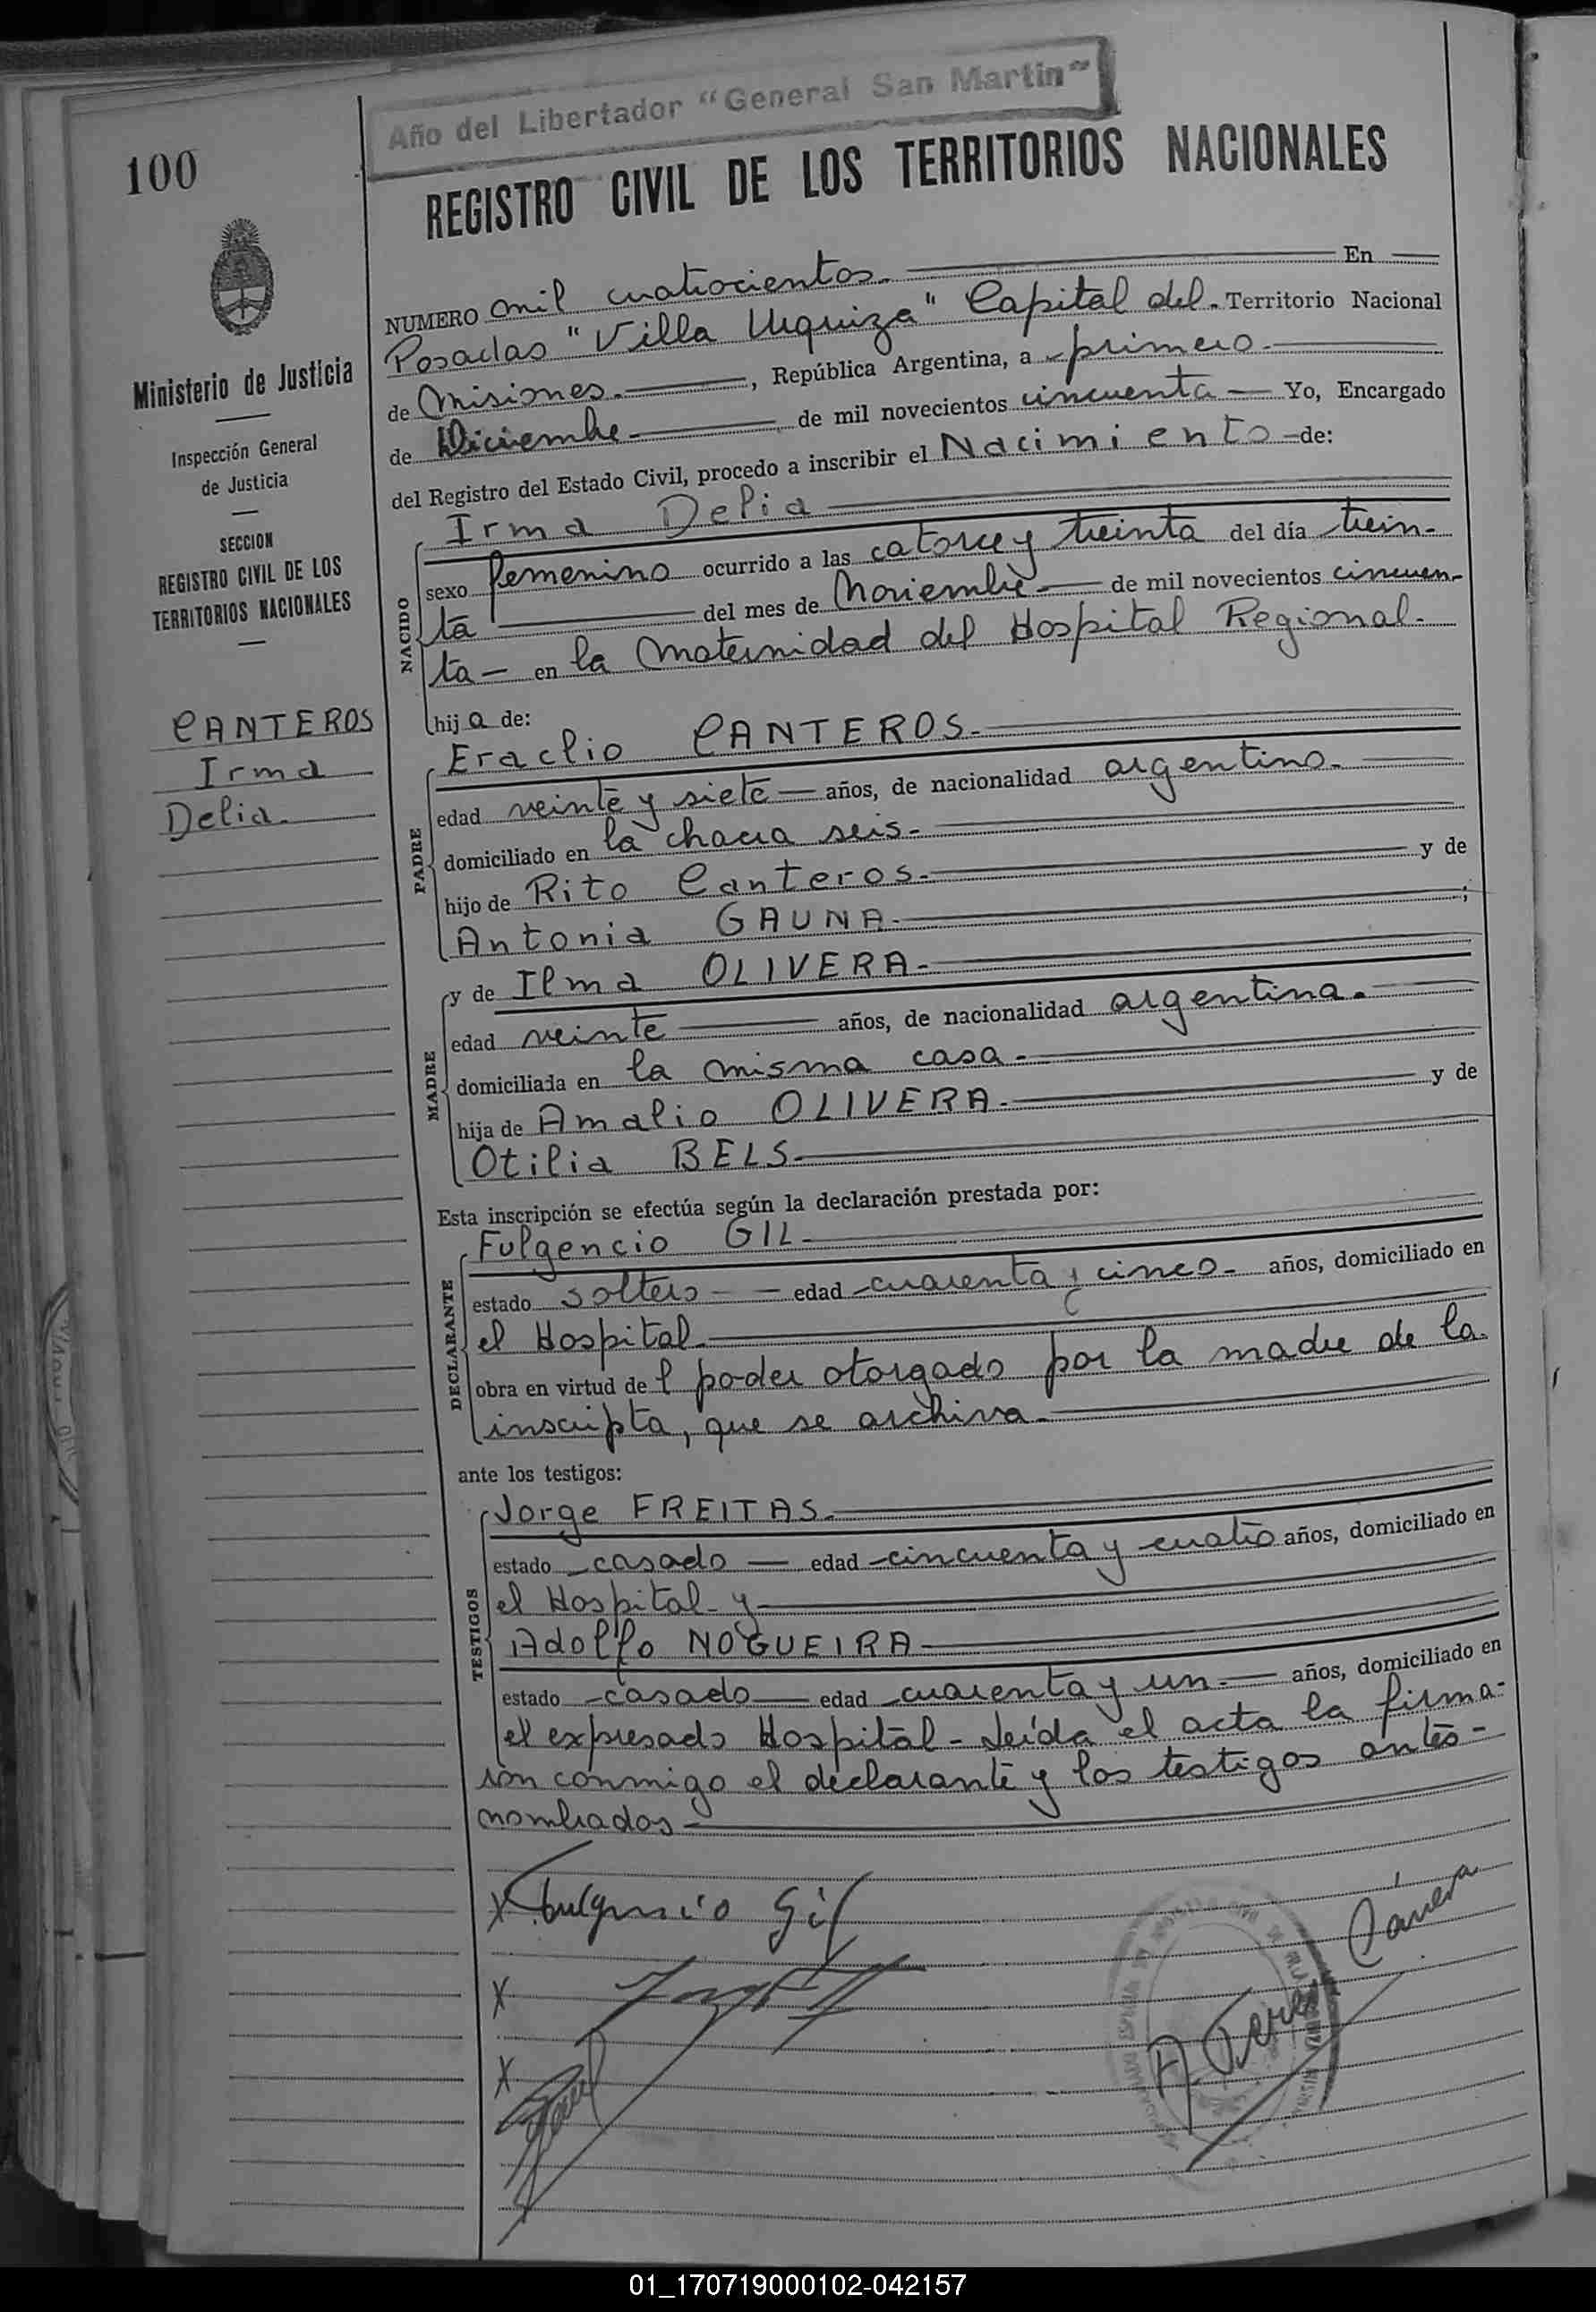 Año del Libertador "General San Martín"
100
REGISTRO CIVIL DE LOS TERRITORIOS NACIONALES
Ministerio de Justicia
Inspección General
de Justicia
SECCION
REGISTRO CIVIL DE LOS
TERRITORIOS NACIONALES
CANTEROS
Irma
Delia.
NUMERO mil cuatrocientos. En
Posadas "Villa Urquiza" Capital del. Territorio Nacional
de Misiones. , República Argentina, a primero.
de Diciembre de mil novecientos cincuenta Yo, Encargado
del Registro del Estado Civil, procedo a inscribir el Nacimiento de:
NACIDO
Irma Delia
sexo femenino ocurrido a las catorce y treinta del día trein-
ta del mes de Noviembre de mil novecientos cincuen-
ta en la Maternidad del Hospital Regional.
hija de:
PADRE
Eraclio CANTEROS.
edad veinte y siete años, de nacionalidad argentino.
domiciliado en la chacra seis.
hijo de Rito Canteros. y de
Antonia GAUNA. ;
MADRE
y de Ilma OLIVERA.
edad veinte años, de nacionalidad argentina.
domiciliada en la misma casa.
hija de Amalio OLIVERA. y de
Otilia BELS.
Esta inscripción se efectúa según la declaración prestada por:
DECLARANTE
Fulgencio GIL
estado soltero edad cuarenta y cinco. años, domiciliado en
el Hospital.
obra en virtud del poder otorgado por la madre de la
inscripta, que se archiva.
ante los testigos:
TESTIGOS
Jorge FREITAS.
estado casado edad cincuenta y cuatro años, domiciliado en
el Hospital y
Adolfo NOGUEIRA
estado casado edad cuarenta y un. años, domiciliado en
el expresado Hospital. Leída el acta la firma-
ron conmigo el declarante y los testigos antes
nombrados
x Fulgencio Gil
x
x
01_170719000102-042157